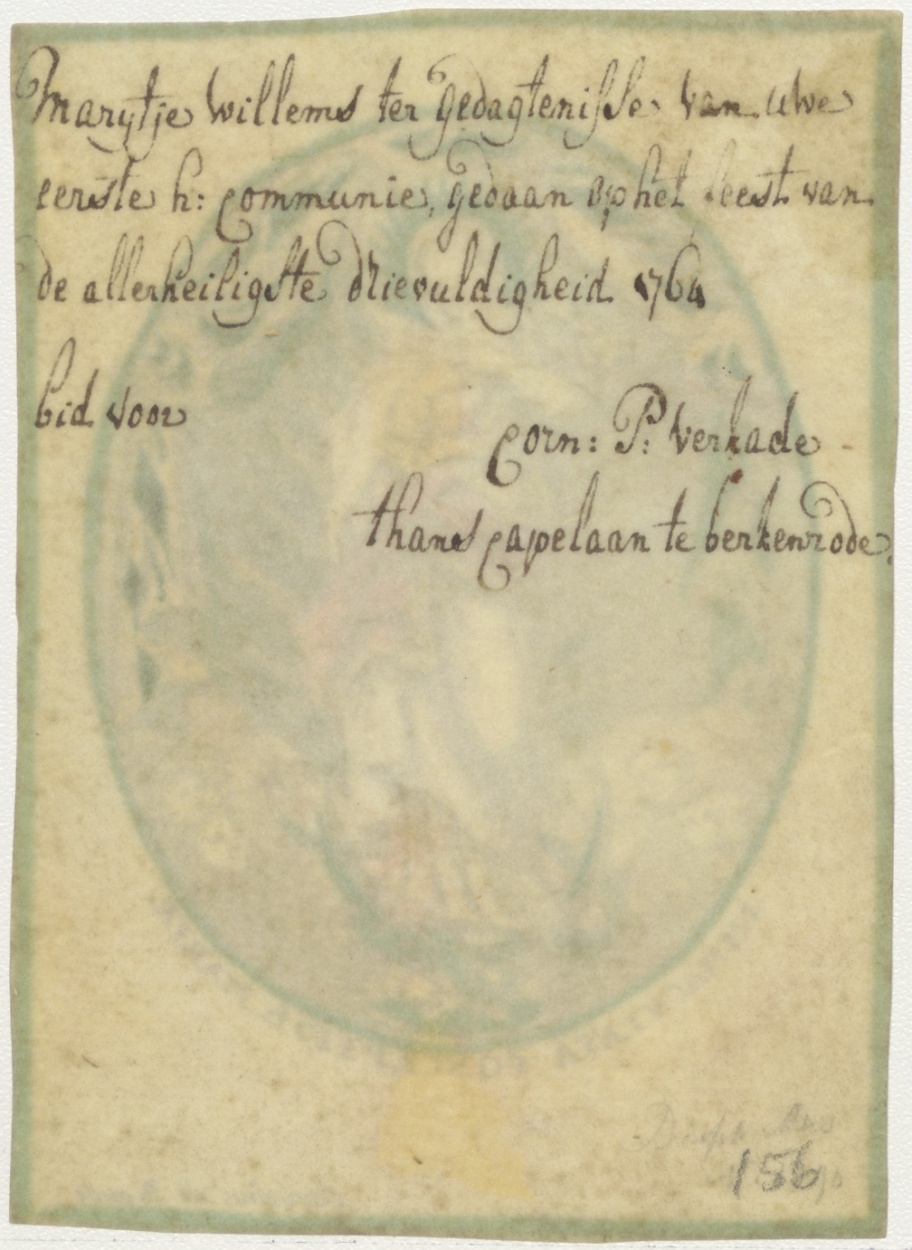 Marytje willems ter gedagtenisse van uwe
eerste h: communie, gedaan op het feest van
de allerheiligste drievuldigheid 1764
bid voor
Corn: P: Verkade
thans capelaan te berkenrode.
156